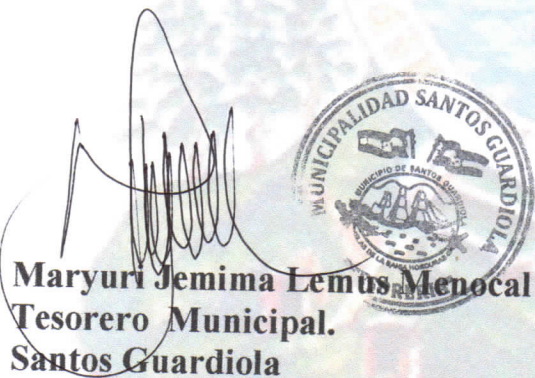 MUNICIPALIDAD SANTOS GUARDIOLA
MUNICIPIO DE SANTOS GUARDIOLA
ISLAS DE LA BAHIA HONDURAS
Maryuri Jemima Lemus Menocal
Tesorero Municipal.
Santos Guardiola